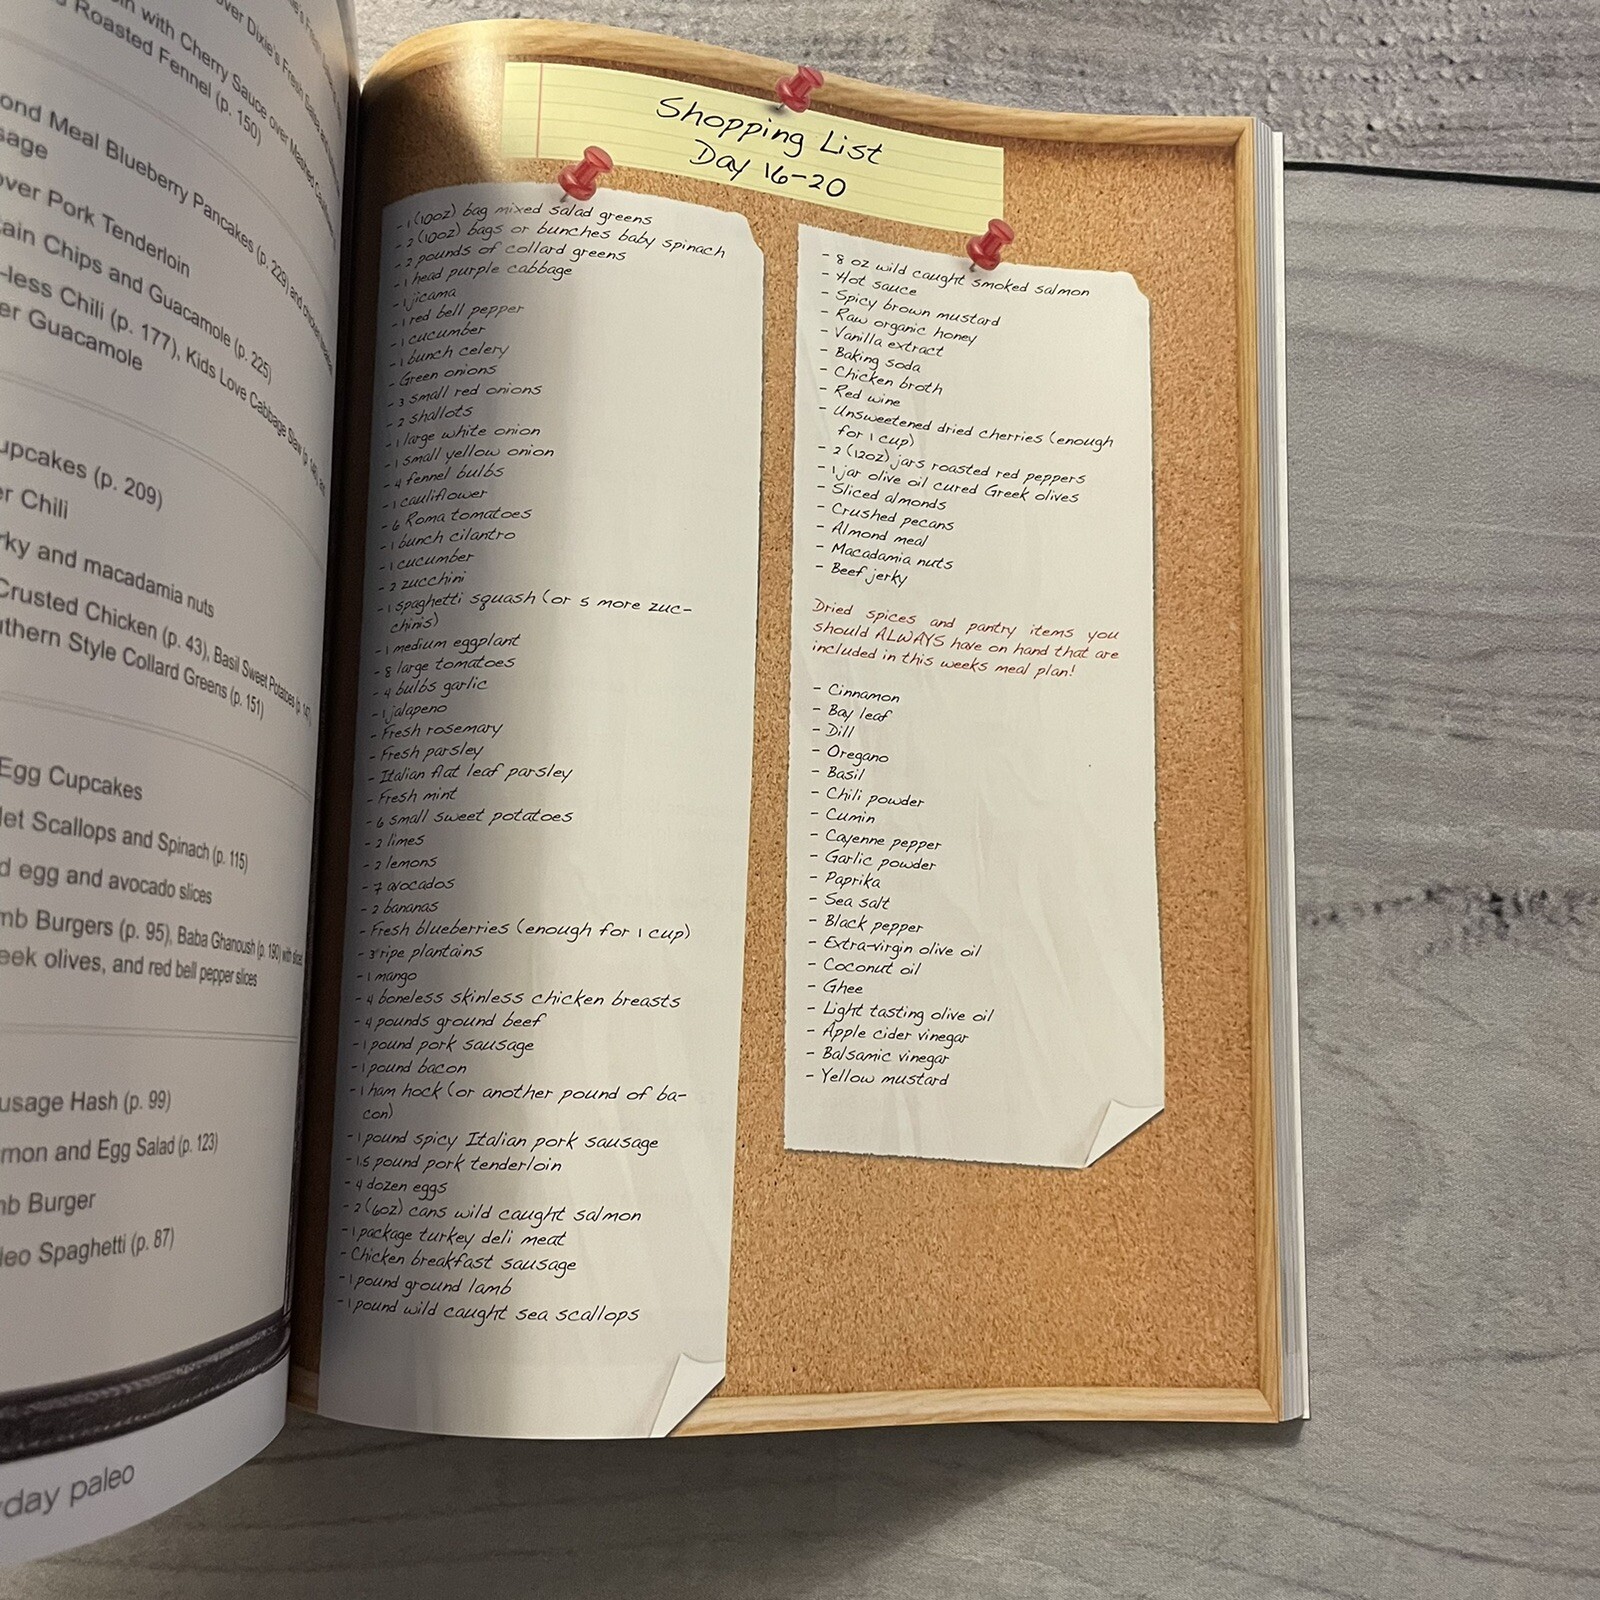 with Cherry Sauce over Mashed
Roasted Fennel (p. 150)
ond Meal Blueberry Pancakes (p. 229) and chicken
sage
over Pork Tenderloin
tain Chips and Guacamole (p. 225)
-less Chili (p. 177), Kids Love Cabbage Slaw
er Guacamole
upcakes (p. 209)
er Chili
rky and macadamia nuts
Crusted Chicken (p. 43), Basil Sweet Potatoes
uthern Style Collard Greens (p. 151)
Egg Cupcakes
let Scallops and Spinach (p. 115)
d egg and avocado slices
mb Burgers (p. 95), Baba Ghanoush (p. 190) with sliced
eek olives, and red bell pepper slices
usage Hash (p. 99)
mon and Egg Salad (p. 123)
mb Burger
leo Spaghetti (p. 87)
yday paleo
Shopping List
Day 16-20
- 1 (10oz) bag mixed salad greens
- 2 (10oz) bags or bunches baby spinach
- 2 pounds of collard greens
- 1 head purple cabbage
- 1 jicama
- 1 red bell pepper
- 1 cucumber
- 1 bunch celery
- Green onions
- 3 small red onions
- 2 shallots
- 1 large white onion
- 1 small yellow onion
- 4 fennel bulbs
- 1 cauliflower
- 6 Roma tomatoes
- 1 bunch cilantro
- 1 cucumber
- 2 zucchini
- 1 spaghetti squash (or 5 more zuc-
chinis)
- 1 medium eggplant
- 8 large tomatoes
- 4 bulbs garlic
- 1 jalapeno
- Fresh rosemary
- Fresh parsley
- Italian flat leaf parsley
- Fresh mint
- 6 small sweet potatoes
- 2 limes
- 2 lemons
- 7 avocados
- 2 bananas
- Fresh blueberries (enough for 1 cup)
- 3 ripe plantains
- 1 mango
- 4 boneless skinless chicken breasts
- 4 pounds ground beef
- 1 pound pork sausage
- 1 pound bacon
- 1 ham hock (or another pound of ba-
con)
- 1 pound spicy Italian pork sausage
- 1.5 pound pork tenderloin
- 4 dozen eggs
- 2 (6oz) cans wild caught salmon
- 1 package turkey deli meat
- Chicken breakfast sausage
- 1 pound ground lamb
- 1 pound wild caught sea scallops
- 8 oz wild caught smoked salmon
- Hot sauce
- Spicy brown mustard
- Raw organic honey
- Vanilla extract
- Baking soda
- Chicken broth
- Red wine
- Unsweetened dried cherries (enough
for 1 cup)
- 2 (12oz) jars roasted red peppers
- 1 jar olive oil cured Greek olives
- Sliced almonds
- Crushed pecans
- Almond meal
- Macadamia nuts
- Beef jerky
Dried spices and pantry items you
should ALWAYS have on hand that are
included in this weeks meal plan!
- Cinnamon
- Bay leaf
- Dill
- Oregano
- Basil
- Chili powder
- Cumin
- Cayenne pepper
- Garlic powder
- Paprika
- Sea salt
- Black pepper
- Extra-virgin olive oil
- Coconut oil
- Ghee
- Light tasting olive oil
- Apple cider vinegar
- Balsamic vinegar
- Yellow mustard